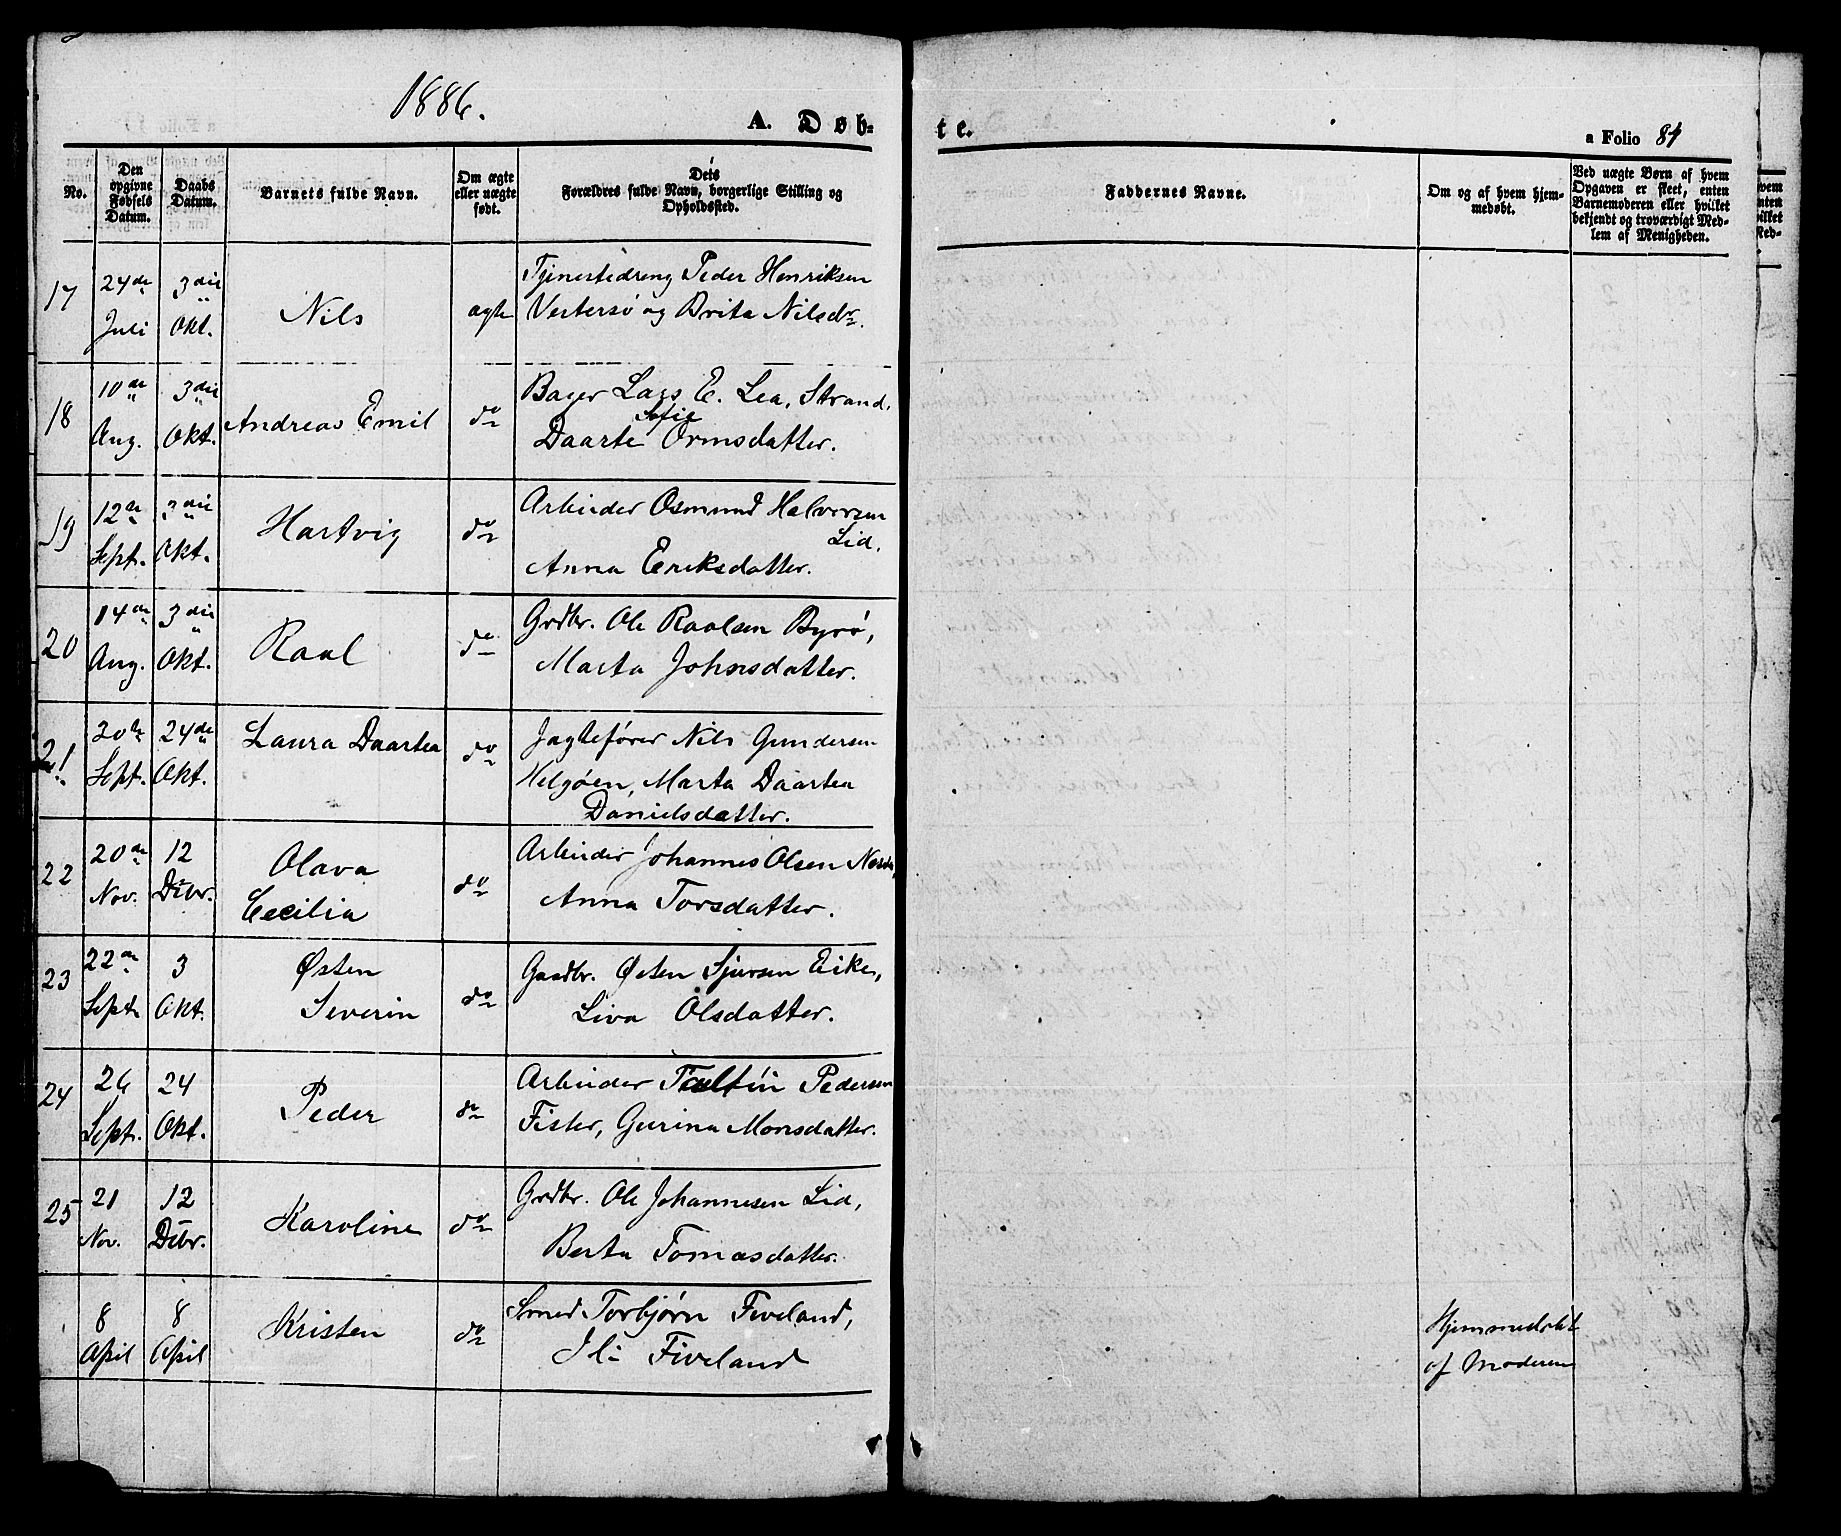 1886.
A. Døb-
te.
a Folio 84
No.
Den opgivne Fødsels Datum.
Daabs Datum.
Barnets fulde Navn.
Om ægte eller uægte født.
Dets Forældres fulde Navn, borgerlige Stilling og Opholdssted.
Faddernes Navne.
Om og af hvem hjemmedøbt.
Ved uægte Børn af hvem Opgaven er skeet, enten Barnemoderen eller hvilket bekjendt og troværdigt Medlem af Menigheden.
17 24de Juli 3die Okt. Nils ægte Tjenestedreng Peder Henriksen
Vestersø og Brita Nilsdr.
18 10de Aug. 3die Okt. Andreas Emil do Lars E. Lea, Strand,
Daarte Sofie Ormsdatter.
19 12te Sept. 3die Okt. Hartvig do Arbeider Osmund Halvorsen
Lid,
Anna Eriksdatter.
20 14de Aug. 3die Okt. Raal do Grdbr. Ole Raalsen Byrø,
Marta Johnsdatter.
21 Sept. 24de Okt. Laura Daartea do Jagtefører Nils Gundersen
Helgøen, Marta Daartea
Danielsdatter.
22 20de Nov. 12 Dcbr. Olava Cecilia do Arbeider Johannes Olsen
Anna Torsdatter.
23 22de Sept. 3 Okt. Østen Severin do Gaadbr. Østen Sjursen Eike,
Siva Olsdatter.
24 26 Sept. 24 Okt. Peder do Arbeider Pedersen
Fister, Gurina Monsdatter.
25 21 Nov. 12 Dcbr. Karoline do Grdbr. Ole Johannesen Lid,
Berta Tomasdatter.
8 April 8 April Kristen do Smed Torbjørn Fiveland,
Fiveland
Hjemmedøbt
af Moderen